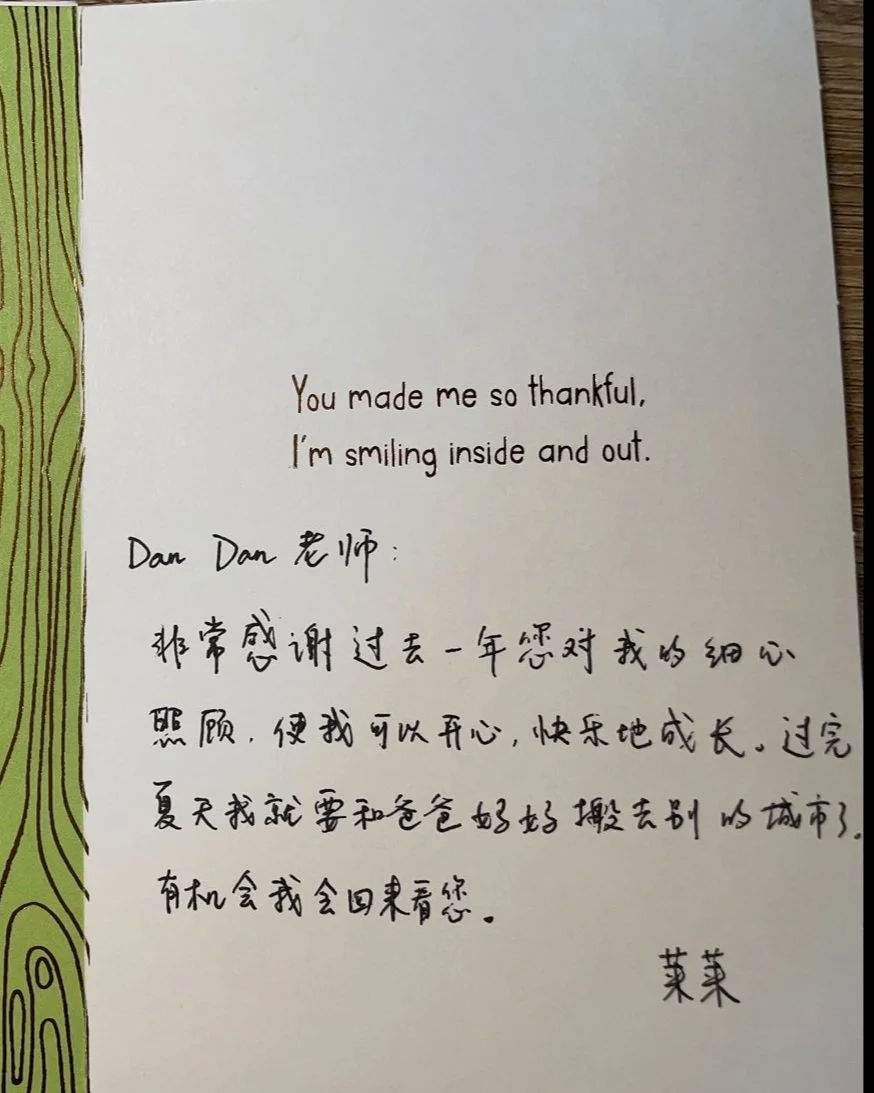 You made me so thankful,
I'm smiling inside and out.
Dan Dan 老师:
非常感谢过去一年您对我的细心
照顾，使我可以开心，快乐地成长。过完
夏天我就要和爸爸妈妈搬去别的城市了。
有机会我会回来看您。
莱莱